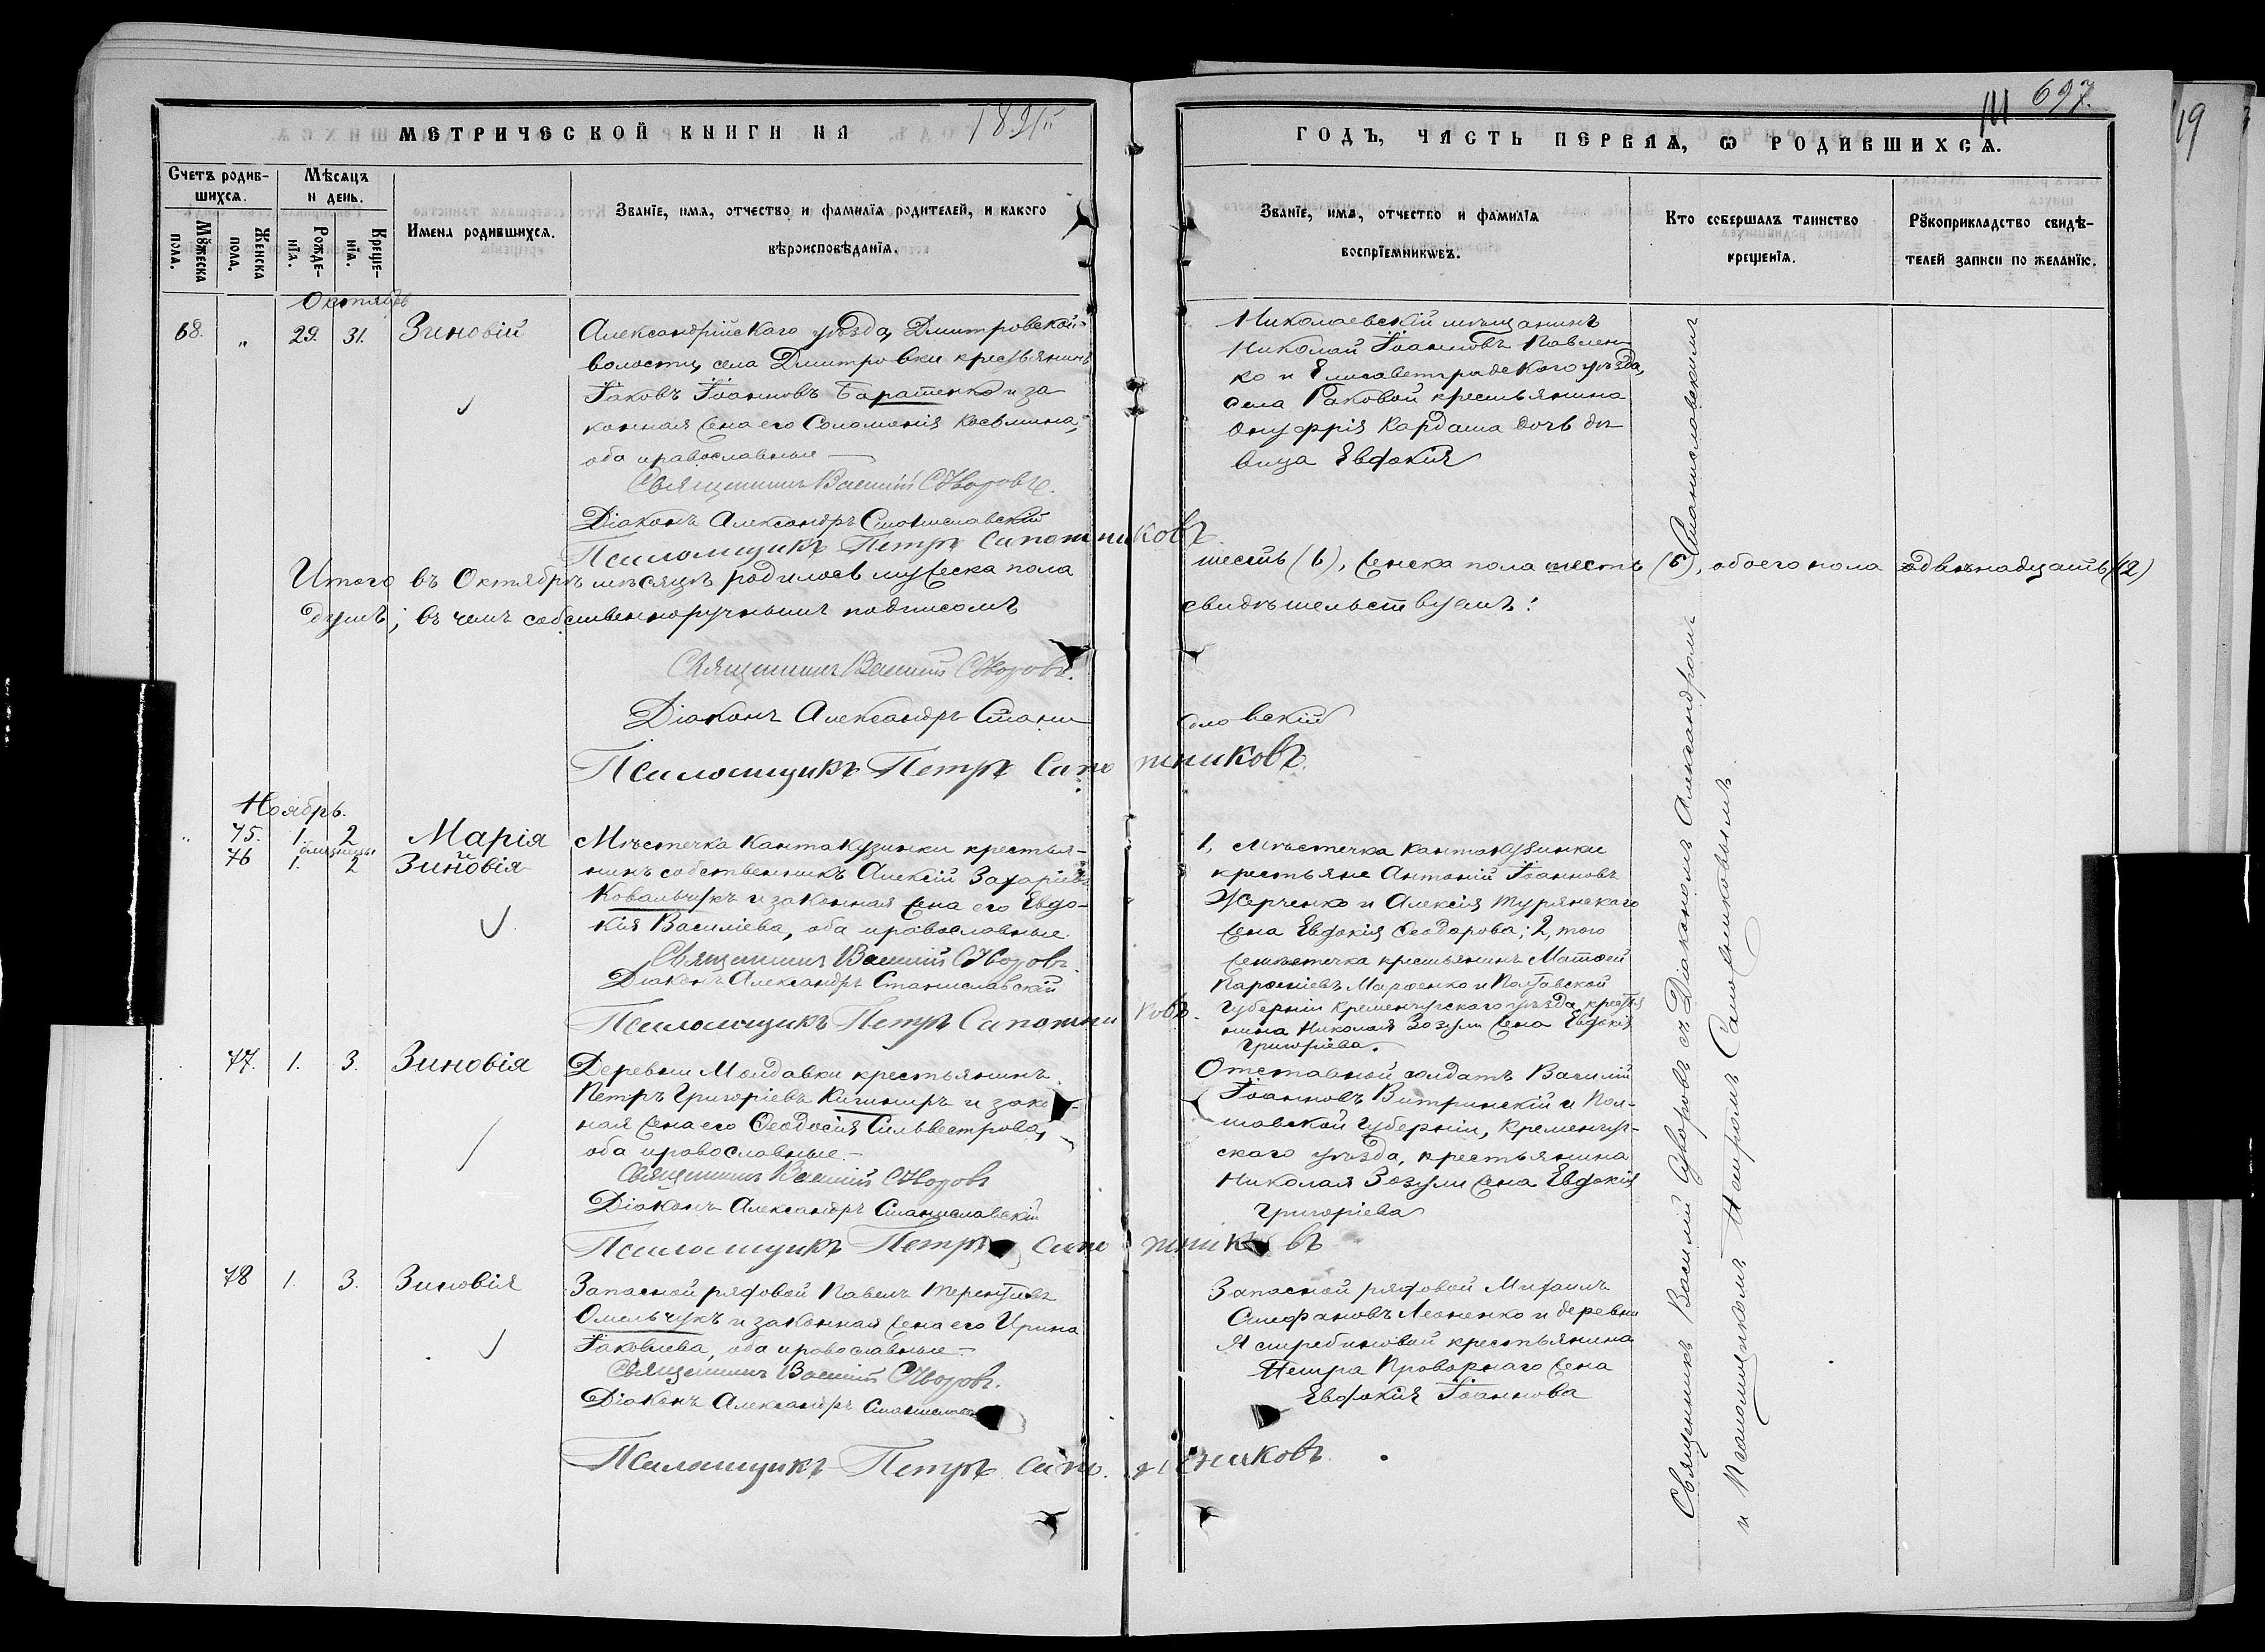 МЕТРИЧЕСКОЙ КНИГИ НА 1891
ГОДЪ, ЧАСТЬ ПЕРВАЯ, Ѡ РОДИВШИХСѦ.
697.
19
Счетъ родив-
шихсѧ.
Мѣсѧцъ
и день.
Мꙋжеска
пола.
Женска
пола.
Рожде-
нїѧ.
Креще-
нїѧ.
Имена родившихсѧ.
Званїе, имѧ, отчество и фамилїѧ родителей, и какого
вѣроисповѣданїѧ.
Званїе, имѧ, отчество и фамилїѧ
воспрїемникѡвъ.
Кто совершалъ таинство
крещенїѧ.
Рꙋкоприкладство свидѣ-
телей записи по желанїю.
Октябрь
68. " 29. 31. Зиновій
Александрійскаго уѣзда, Дмитровской
волости, села Дмитровки крестьянинъ
Іаковъ Іоанновъ Баратенко и за
конная жена его Соломонія Косьмина,
оба православные
Священникъ Василій Суворовъ.
Діаконъ Александръ Станиславскій
Псаломщикъ Петръ Сапожниковъ.
Николаевскій мѣщанинъ
Николай Іоанновъ Павлен-
ко и Елисаветградскаго уѣзда,
села Раковой крестьянина
Онуфрія Кардаша дочь дѣ
вица Евдокія
Итого въ Октябрѣ мѣсяцѣ родилось мужеска пола шесть (6), женска пола шесть (6), обоего пола двѣнадцать (12)
душъ; въ чемъ собственноручнымъ подписомъ свидѣтельствуемъ:
Священникъ Василій Суворовъ.
Діаконъ Александръ Станиславскій
Псаломщикъ Петръ Сапожниковъ.
Ноябрь.
75. 1. 2 Марія
близнецы
76 1. 2 Зиновія
Мѣстечка Кантакузинки крестья-
нинъ собственникъ Алексій Захаріевъ
Ковальчукъ и законная жена его Евдо-
кія Василіева, оба православные
Священникъ Василій Суворовъ.
Діаконъ Александръ Станиславскій
Псаломщикъ Петръ Сапожниковъ.
1, Мѣстечка Кантакузинки
крестьяне Антоній Іоанновъ
Жерченко и Алексія Турянскаго
жена Евдокія Ѳеодорова; 2, того
же мѣстечка крестьянинъ Матѳей
Парѳеніевъ Марѳенко и Полтавской
Губерніи Кременчугскаго уѣзда, крестья
нина Николая Зозули жена Евдокія
Григоріева.
77. 1. 3. Зиновія
Деревни Молдавки крестьянинъ
Петръ Григоріевъ Кишниръ и закон-
ная жена его Ѳеодосія Сильвестрова,
оба православные.-
Священникъ Василій Суворовъ
Діаконъ Александръ Станиславскій
Псаломщикъ Петръ Сапожниковъ
Отставной солдатъ Василій
Іоанновъ Витринскій и Пол-
тавской Губерніи, Кременчуг-
скаго уѣзда, крестьянина
Николая Зозули жена Евдокія
Григоріева
78 1. 3. Зиновія
Запасной рядовой Павелъ Терентіевъ
Омельчукъ и законная жена его Ирина
Іаковлева, оба православные.-
Священникъ Василій Суворовъ.
Діаконъ Александръ Станиславск
Псаломщикъ Петръ Сапожниковъ.
Запасной рядовой Михаилъ
Стефановъ Леоненко и деревни
Ястребиновой крестьянина
Петра Проворнаго жена
Евдокія Іоаннова
Священникъ Василій Суворовъ съ Діакономъ Александромъ Станиславскимъ
и Псаломщикомъ Петромъ Сапожниковымъ